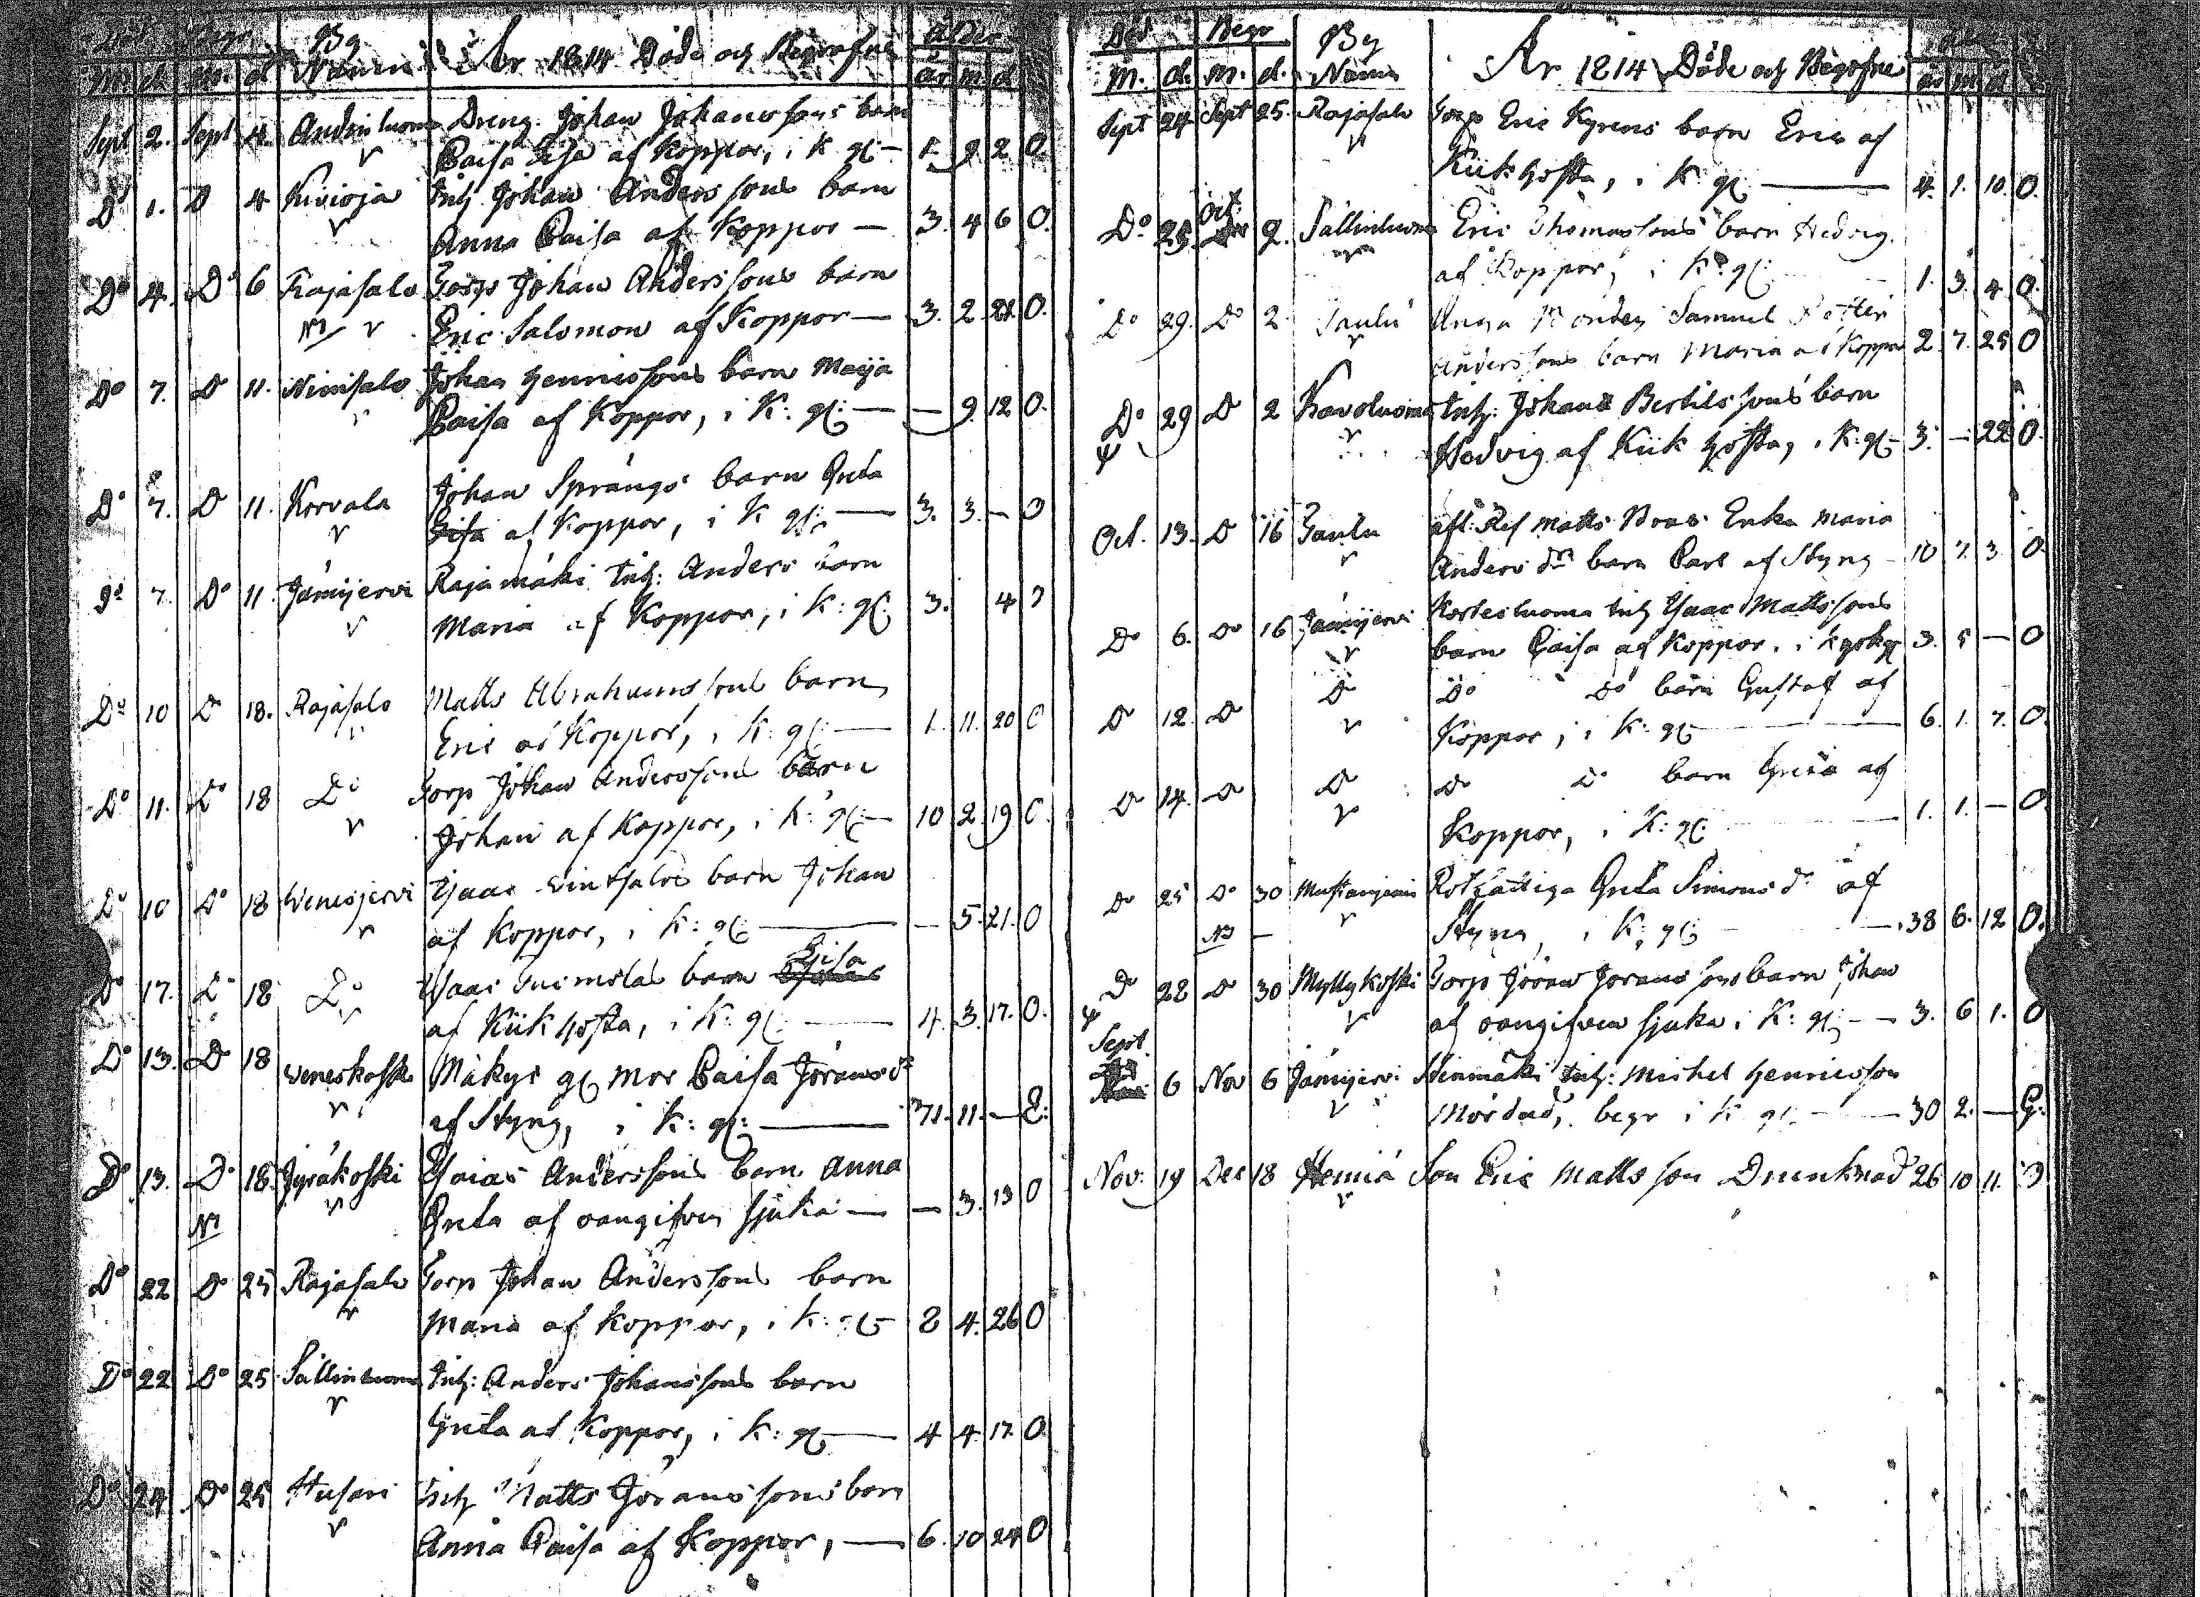 Död Begr By Namn År 1814 Döde och Begrafne Ålder
M. d. M. d. år m. d
Sept 2. Sept 4. Andinluoma Dreng. Johan Johanssons barn
Caisa Lisa af Koppor, i K gl: 1. 9 2 O
Do 1. Do 4 Kivioja Inh Johan Anderssons barn
Anna Caisa af Koppor — 3. 4 6 O.
Do 4. Do 6 Rajasalo Torp Johan Anderssons barn
Eric Salomon af Koppor — 3. 2. 21. O.
Do 7. Do 11. Niinisalo Johan Henricssons barn Maija
Caisa af Koppor, i K: gl: — — 9. 12 O.
Do 7. Do 11. Korvala Johan Sprängs barn Greta
Lisa af Koppor, i K gl: — 3. 3. — O
Do 7. Do 11. Jämijervi Rajamäki Inh: Anders barn
Maria af Koppor, i K: gl: 3. 4
Do 10 Do 18. Rajasalo Matts Abrahamssons barn
Eric af Koppor, i K: gl: — 1. 11. 20 O
Do 11. Do 18 Do Torp Johan Anderssons barn
Johan af Koppor, i K: gl: — 10 2. 19 O.
Do 10 Do 18 Wenesjervi Isaac barn Johan
af Koppor, i K: gl: — — 5. 21. O
Do 17. Do 18 Do Isaac barn Lisa
af Kiikhosta, i K: gl: — 4. 3. 17. O.
Do 13. Do 18 Weneskoski Mäkys gl mor Caisa Jöransdr
af Styng, i K: gl: — 71. 11. — E.
Do 13. Do 18. Jyräkoski Esaias Anderssons barn Anna
Greta af oangifven sjuka — — 3. 13 O
NB
Do 22 Do 25 Rajasalo Torp Johan Anderssons barn
Maria af Koppor, i K: gl: 8 4. 26 O
Do 22 Do 25 Sällinluoma Inh: Anders Johanssons barn
Greta af Koppor, i K: gl: — 4 4. 17. O.
Do 24 Do 25 Husari Inh Matts Jöranssons barn
Anna Caisa af Koppor, — 6. 10 24 O
Död Begr By Namn År 1814 Döde och Begrafne
M. d. M. d. år m. d
Sept 24 Sept 25. Rajasalo Torp Eric Kyrens barn Eric af
Kiikhosta, i K: gl: — 4. 1. 10. O.
Do 25. Oct. 2. Sällinluoma Eric Thomassons barn Hedvig
af Koppor, i K: gl: 1. 3. 4. O.
Do 29. Do 2 Taulu Unga Bonden Samuel Petter
Anderssons barn Maria af Koppor 2. 7. 25 O
Do 29 Do 2 Kavoluoma Inh: Johan Bertilssons barn
Hedvig af Kiikhosta, i K: gl: 3. — 22 O.
Oct. 13. Do 16 Taulu afl: Ref Matts Bras Enka Maria
Anders dr barn Carl af Styng 10 7. 3 O.
Do 6. Do 16 Jämijervi Kortesluoma Inh Isaac Mattssons
barn Caisa af Koppor, i 3. 5 — O
Do 12. Do Do Do Do barn Gustaf af
Koppor, i K: gl: — 6. 1. 7. O.
Do 14. Do Do Do Do barn Greta af
Koppor, i K: gl: — 1. 1. — O.
Do 25 Do 30 Rotfattiga Greta Simons dr af
Styng, i K: gl: — 38 6. 12 O.
NB
Do 28 Do 30 Myllykoski Torp Jöran Joranssons barn Johan
af oangifven sjuka, i K: gl: — 3. 6 1. O
Sept. 6 Nov 6 Jämijervi Inh: Michel Henricsson
Mördad, begr i K gl: — 30 2. — G.
Nov. 19 Dec 18 Heiniä Son Eric Mattsson Drunknad 26 10 11.